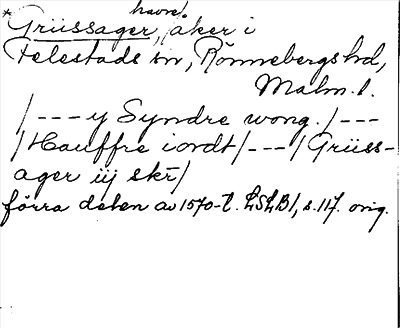 havre!
*Grüssager, åker i
Felestads sn, Rönnebergs hd,
Malm. l.
/--- y Syndre wong. /---
/Hauffre iordt/---/Grüss-
ager iij skr/
förra delen av 1570-t. LSLB1, s. 117. orig.